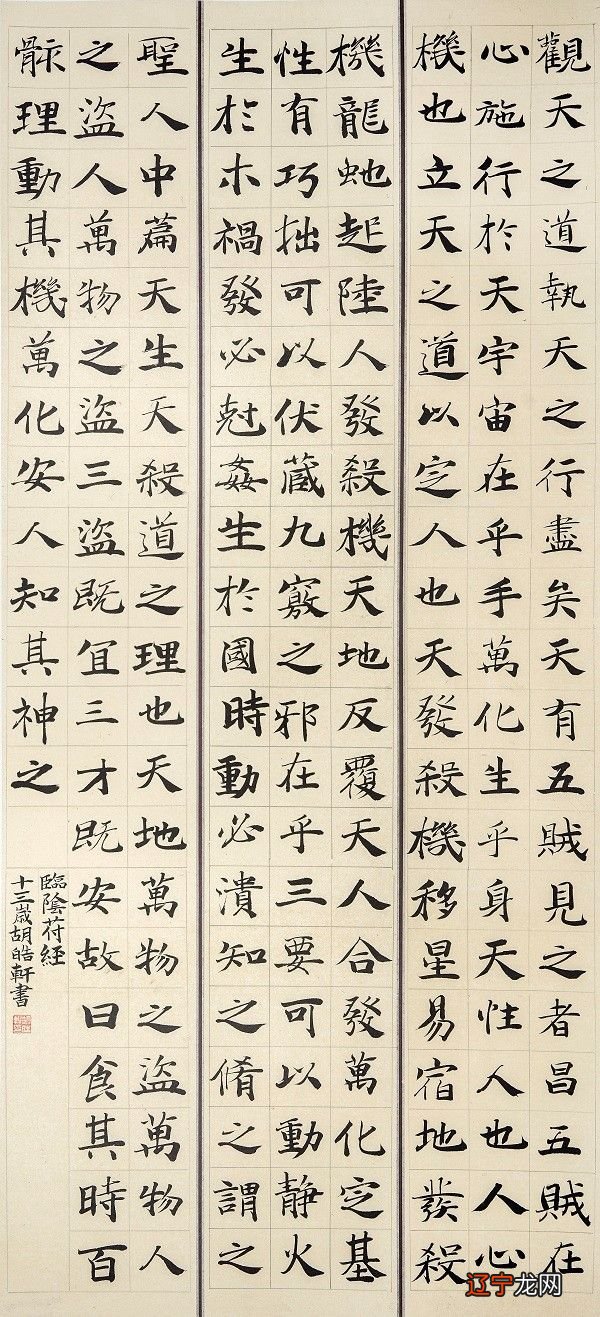 觀天之道執天之行盡矣天有五賊見之者昌五賊在
心施行於天宇宙在乎手萬化生乎身天性人也人心
機也立天之道以定人也天發殺機移星易宿地發殺
機龍虵起陸人發殺機天地反覆天人合發萬化定基
性有巧拙可以伏蔵九竅之邪在乎三要可以動静火
生於木禍發必尅姦生於國時動必潰知之脩之謂之
聖人中篇天生天殺道之理也天地萬物之盜萬物人
之盜人萬物之盜三盜既冝三才既安故曰食其時百
骸理動其機萬化安人知其神之
臨陰苻經
十三嵗胡皓軒書
辽宁龙网